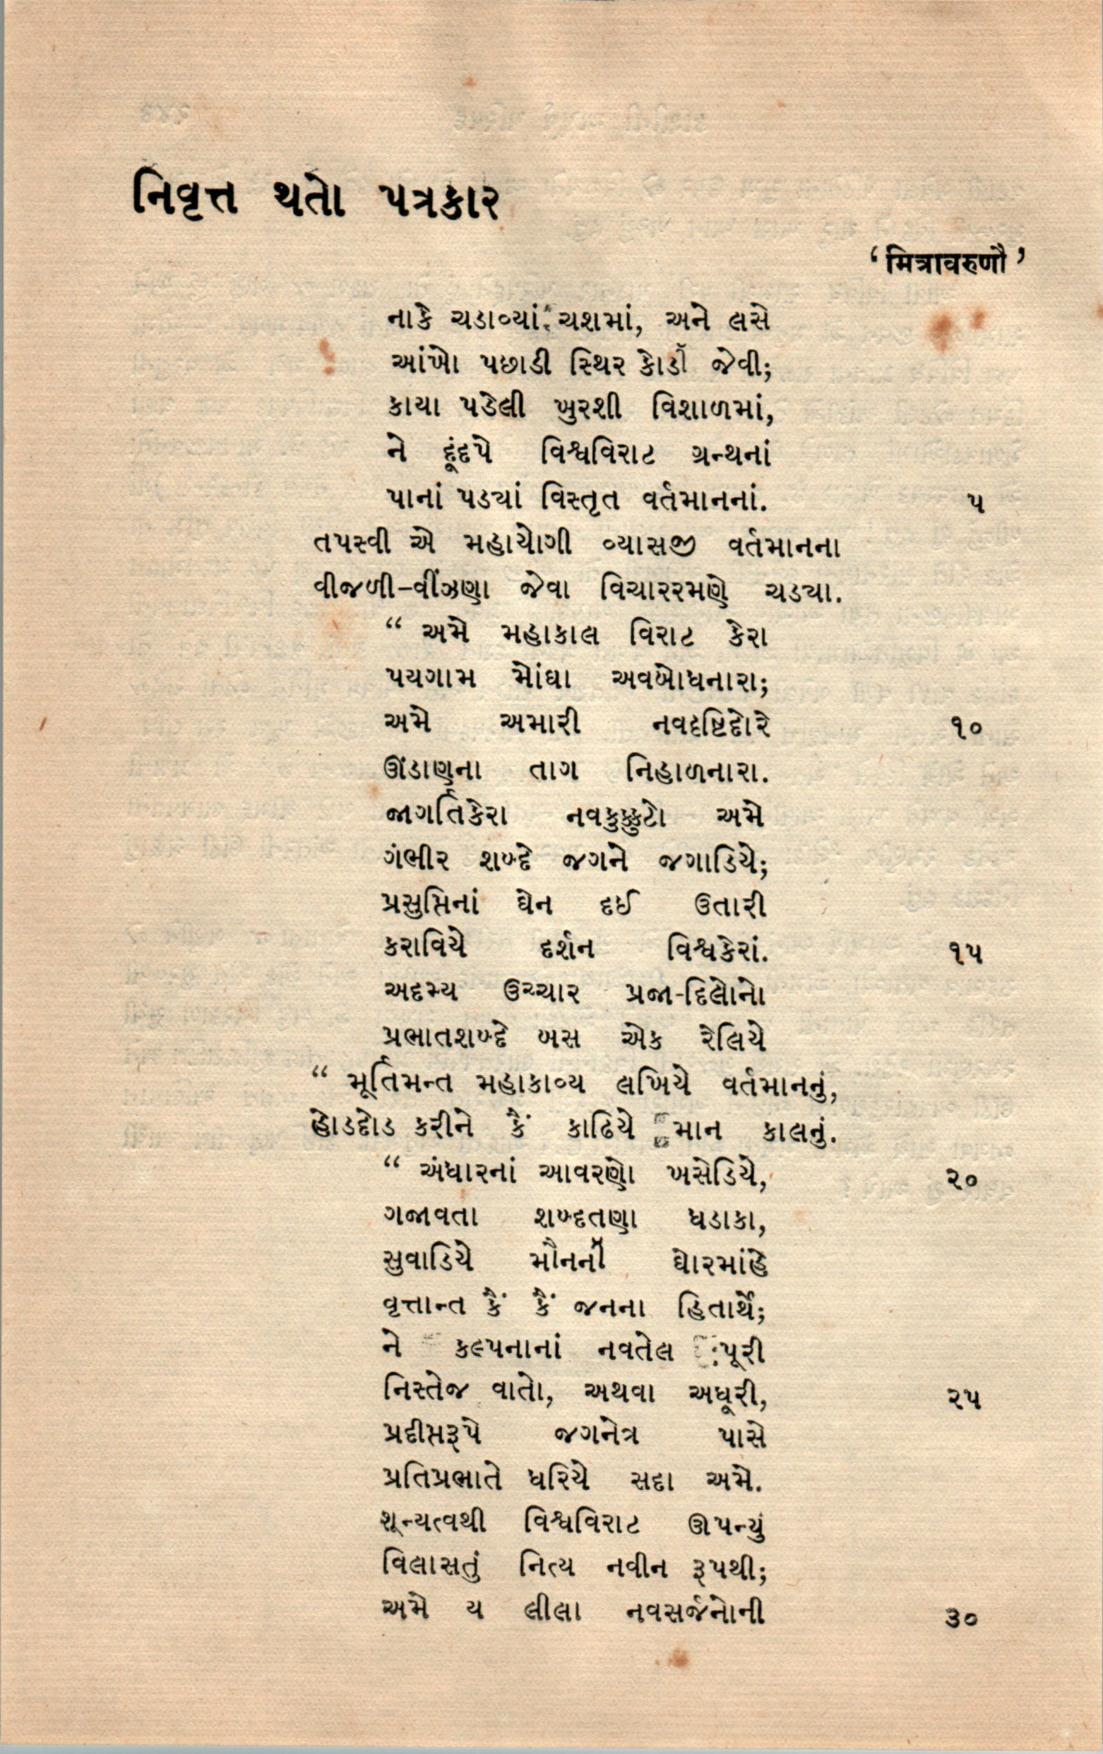 નિવૃત્ત થતો પત્રકાર
‘मित्रावरुणौ’
નાકે ચડાવ્યાં ચશમાં, અને લસે
આંખો પછાડી સ્થિર કોર્ડા જેવી;
કાયા પડેલી ખુરશી વિશાળમાં,
ને દૂંદપે વિશ્વવિરાટ ગ્રન્થનાં
પાનાં પડ્યાં વિસ્તૃત વર્તમાનનાં. ૫
તપસ્વી એ મહાયોગી વ્યાસજી વર્તમાનના
વીજળી–વીંઝણા જેવા વિચારરમણે ચડ્યા.
“ અમે મહાકાલ વિરાટ કેરા
પયગામ મોંઘા અવબોધનારા;
અમે અમારી નવદૃષ્ટિદોરે ૧૦
ઊંડાણના તાગ નિહાળનારા.
જાગર્તિકેરા નવકુક્કુટો અમે
ગંભીર શબ્દે જગને જગાડિયે;
પ્રસુપ્તિનાં ઘેન દઈ ઉતારી
કરાવિયે દર્શન વિશ્વકેરાં. ૧૫
અદમ્ય ઉચ્ચાર પ્રજા-દિલોનો
પ્રભાતશબ્દે બસ એક રેલિયે
“ મૂર્તિમન્ત મહાકાવ્ય લખિયે વર્તમાનનું,
હોડદોડ કરીને કૈં કાઢિયે માન કાલનું.
“ અંધારનાં આવરણો ખસેડિયે, ૨૦
ગજાવતા શબ્દતણા ધડાકા,
સુવાડિયે મૌનની ઘોરમાંહે
વૃત્તાન્ત કૈં કૈં જનના હિતાર્થે;
ને કલ્પનાનાં નવતેલ પૂરી
નિસ્તેજ વાતો, અથવા અધૂરી, ૨૫
પ્રદીપ્તરૂપે જગનેત્ર પાસે
પ્રતિપ્રભાતે ધરિયે સદા અમે.
શૂન્યત્વથી વિશ્વવિરાટ ઊપન્યું
વિલાસતું નિત્ય નવીન રૂપથી;
અમે ય લીલા નવસર્જનોની ૩૦